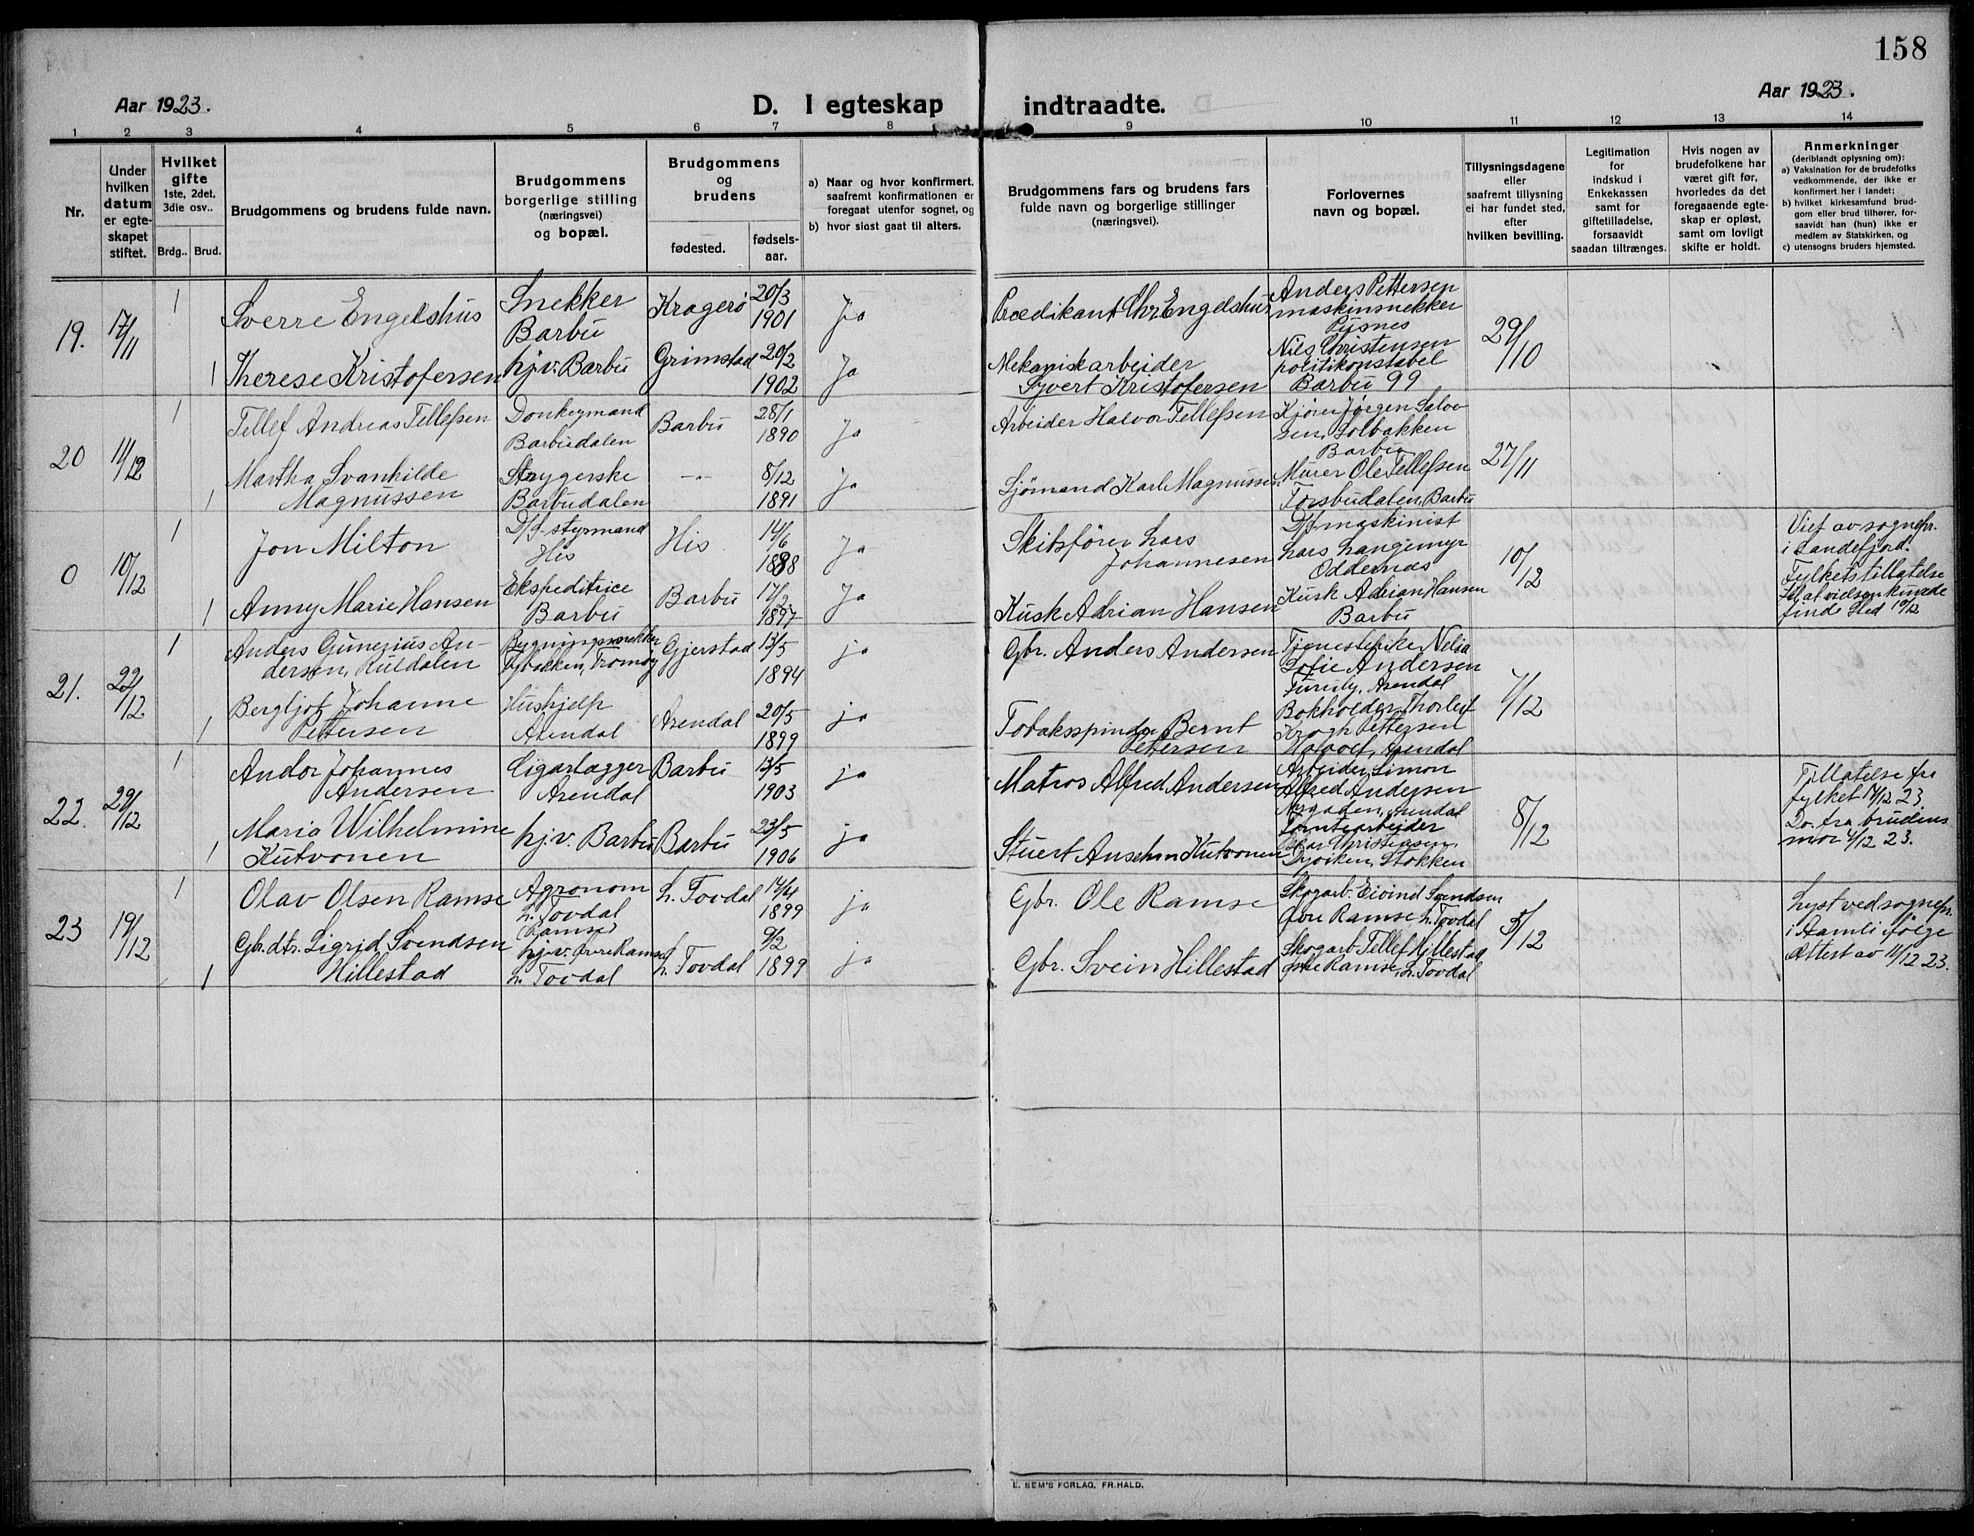 158
Aar 1923.
D. I egteskap indtraadte.
Aar 1923.
1 2 3 4 5 6 7 8 9 10 11 12 13 14
Nr.
Under
hvilken
datum
er egte-
skapet
stiftet.
Hvilket
gifte
1ste, 2det,
3die osv..
Brdg.. Brud.
Brudgommens og brudens fulde navn.
Brudgommens
borgerlige stilling
(næringsvei)
og bopæl.
Brudgommens
og
brudens
fødested.
fødsels-
aar.
a) Naar og hvor konfirmert,
saafremt konfirmationen er
foregaat utenfor sognet, og
b) hvor sidst gaat til alters.
Brudgommens fars og brudens fars
fulde navn og borgerlige stillinger
(næringsvei).
Forlovernes
navn og bopæl.
Tillysningsdagene
eller
saafremt tillysning
ei har fundet sted,
efter
hvilken bevilling.
Legitimation
for
indskud i
Enkekassen
samt for
giftetilladelse,
forsaavidt
saadan tiltrænges.
Hvis nogen av
brudefolkene har
været gift før,
hvorledes da det
foregaaende egte-
skap er opløst,
samt om lovligt
skifte er holdt.
Anmerkninger
(deriblandt oplysning om):
a) Vaksination for de brudefolks
vedkommende, der ikke er
konfirmert her i landet;
b) hvilket kirkesamfund brud-
gom eller brud tilhører, for-
saavidt han (hun) ikke er
medlem av Statskirken, og
c) utensogns bruders hjemsted.
19. 17/11
1 Sverre Engelshus
Snekker
Barbu
Kragerø
20/3
1901
Ja
Prædikant Chr Engelshus
Anders Pettersen
maskinsnekker
Pusnes
29/10
1 Therese Kristofersen
hjv. Barbu
Grimstad
20/2
1902
Ja
Mekanisk arbeider
Syvert Kristofersen
Nils Christensen
politikonstabel
Barbu 99
20 11/12
1 Tellef Andreas Tellefsen
Donkeymand
Barbudalen
Barbu
28/1
1890
Ja
Arbeider Halvor Tellefsen
Kjører Jørgen Salve-
sen, Solbakken
Barbu
27/11
1 Martha Svanhilde
Magnussen
Strygerske
Barbudalen
-"-
8/12
1891
Ja
Sjömand Karl Magnussen
Murer Ole Tellefsen
Torsbudalen, Barbu
0 10/12
1 Jon Milton
D/S-styrmand
His
His
14/6
1888
Ja
Skibsfører Lars
Johannesen
D/S maskinist
Lars Langemyr
Oddernes
10/12
Viet av sognepr.
i Sandefjord.
Fylkets tillatelse
til at vielsen kunde
finde sted 10/12
1 Anny Marie Hansen
Ekspeditrice
Barbu
Barbu
17/2
1897
Ja
Kusk Adrian Hansen
Kusk Adrian Hansen
Barbu
21. 22/12
1 Anders Gunerius An-
dersen, Ruldalen
Bygningssnekker
Gjerstad
13/5
1894
ja
Gbr. Anders Andersen
Tjenestepike Nelia
Sofie Andersen
Furuly, Arendal
7/12
1 Bergljot Johanne
Pettersen
Hushjelp
Arendal
Arendal
20/5
1899
ja
Tobaksspinder Bernt
Pettersen
Bokholder Thorleif
Krogh Pettersen
Arendal
22. 29/12
1 Andor Johannes
Andersen
Cigarlagger
Arendal
Barbu
13/5
1903
ja
Matros Alfred Andersen
Arbeider Simon
Alfred Andersen
Nygaden, Arendal
8/12
Tillatelse fra
fylket 17/12 23
Do. fra brudens
mor 4/12 23.
1 Maria Wilhelmine
Kutvonen
hj.v. Barbu
Barbu
23/5
1906
ja
Stuert Anselm Kutvonen
Tomtearbeider
Oskar Christensen,
Stokken
23 19/12
1 Olav Olsen Ramse
Agronom
h. Tovdal
(Ramse)
h. Tovdal
14/4
1899
ja
Gbr. Ole Ramse
Skogarb. Eivind Svendsen
øvre Ramse h. Tovdal
5/12
Lyst ved sognepr.
i Aamli ifølge
Attest av 11/12 23.
1 Gbr.dtr. Sigrid Svendsen
Hillestad
hj.v. øvre Ramse
h. Tovdal
h. Tovdal
9/2
1899
ja
Gbr. Svein Hillestad
Skogarb. Tellef Hillestad
øvre Ramse, h. Tovdal
E. SEM'S FORLAG, FR.HALD.